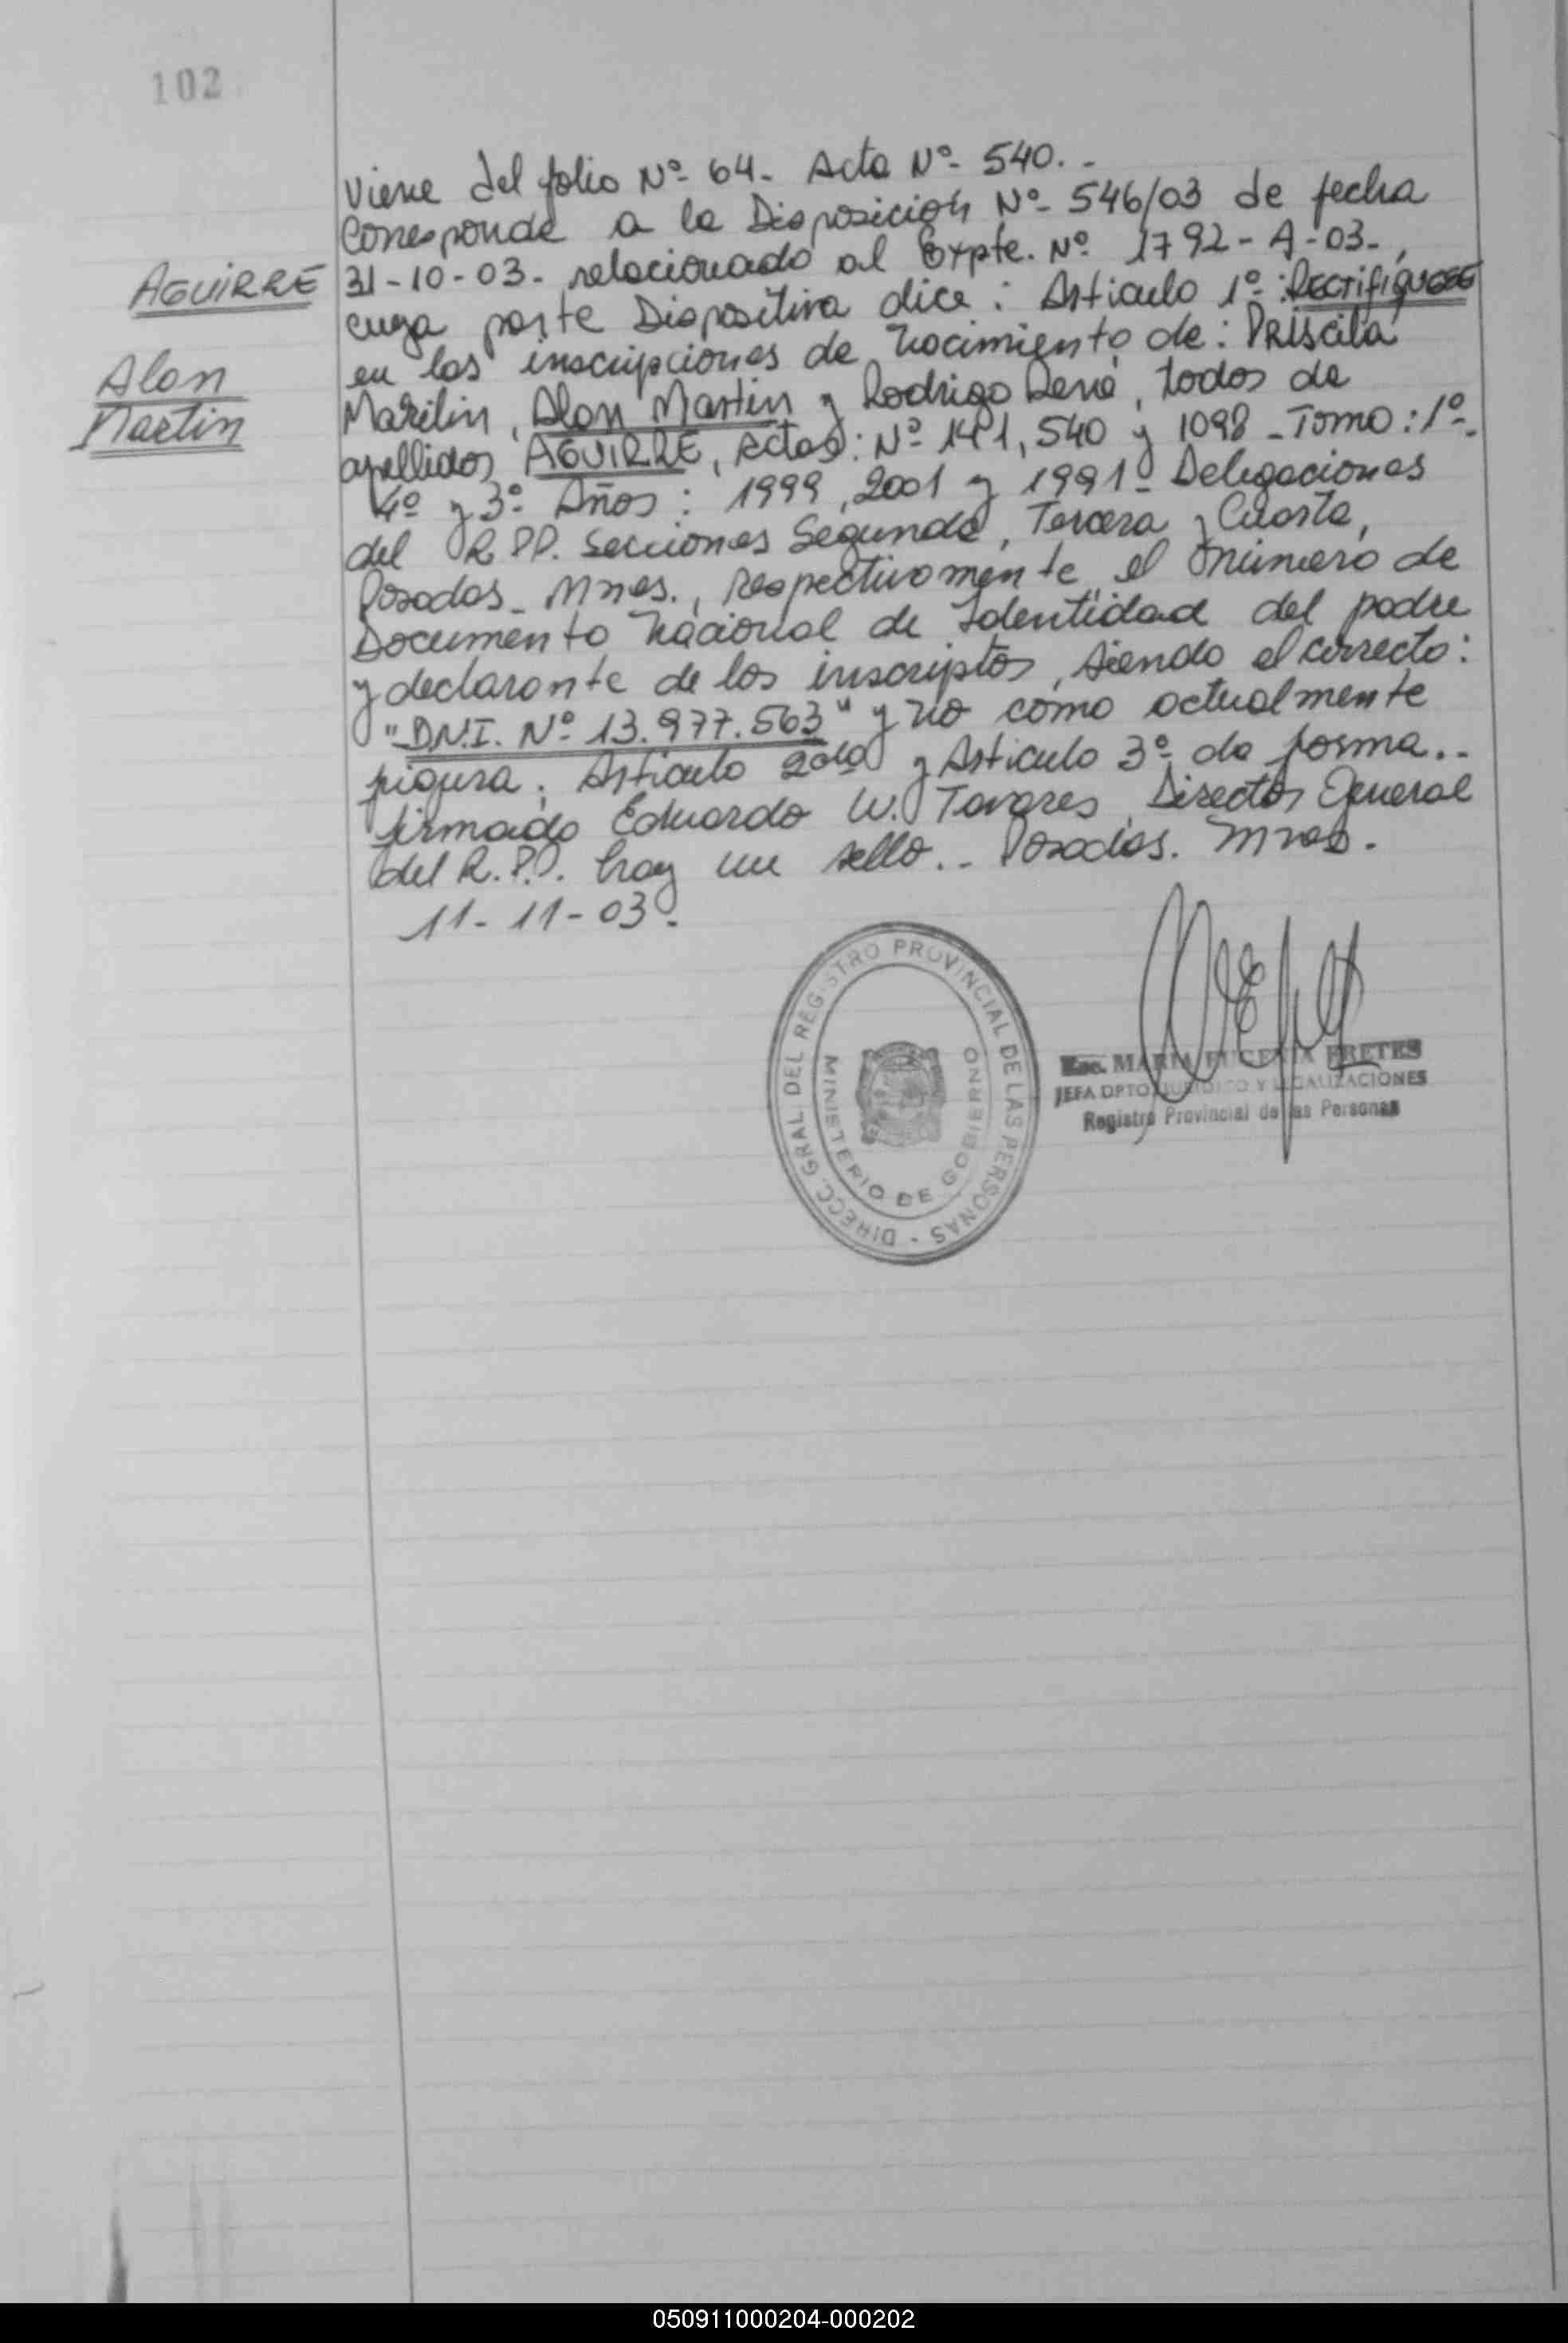 102
Viene del folio Nº 64- Acta Nº 540.-
Corresponde a la Disposición Nº 546/03 de fecha
AGUIRRE
31-10-03- relacionado al Expte. Nº 1792-A-03-,
cuya parte Dispositiva dice: Articulo 1º: RECTIFIQUESE
Alan
Martin
en las inscripciones de Nacimiento de: PRISCILA
Marilin, Alan Martin y Rodrigo René, todos de
apellidos AGUIRRE, Actas: Nº 141, 540 y 1098 - Tomo: 1º-
4º y 3º Años: 1999, 2001 y 1991- Delegaciones
del R.P.P. Secciones Segunda, Tercera y Cuarta,
Posadas- Mnes., respectivamente, el número de
Documento Nacional de Identidad del padre
y declarante de los inscriptos, siendo el correcto:
"DN.I. Nº 13.977.563" y no como actualmente
figura. Articulo 2do y Articulo 3º de forma..-
firmado Eduardo W. Tavares Director General
del R.P.P. hay un sello..- Posadas. Mnes.
11-11-03-
DIRECC. GRAL. DEL REGISTRO PROVINCIAL DE LAS PERSONAS -
MINISTERIO DE GOBIERNO
Esc. MARIA EUGENIA FRETES
JEFA DPTO JURIDICO Y LEGALIZACIONES
Registro Provincial de las Personas
050911000204-000202